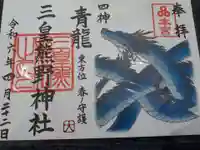 奉拝
四神
青龍
東方位 春ノ守護
三皇熊野神社
令和六年四月二十二日